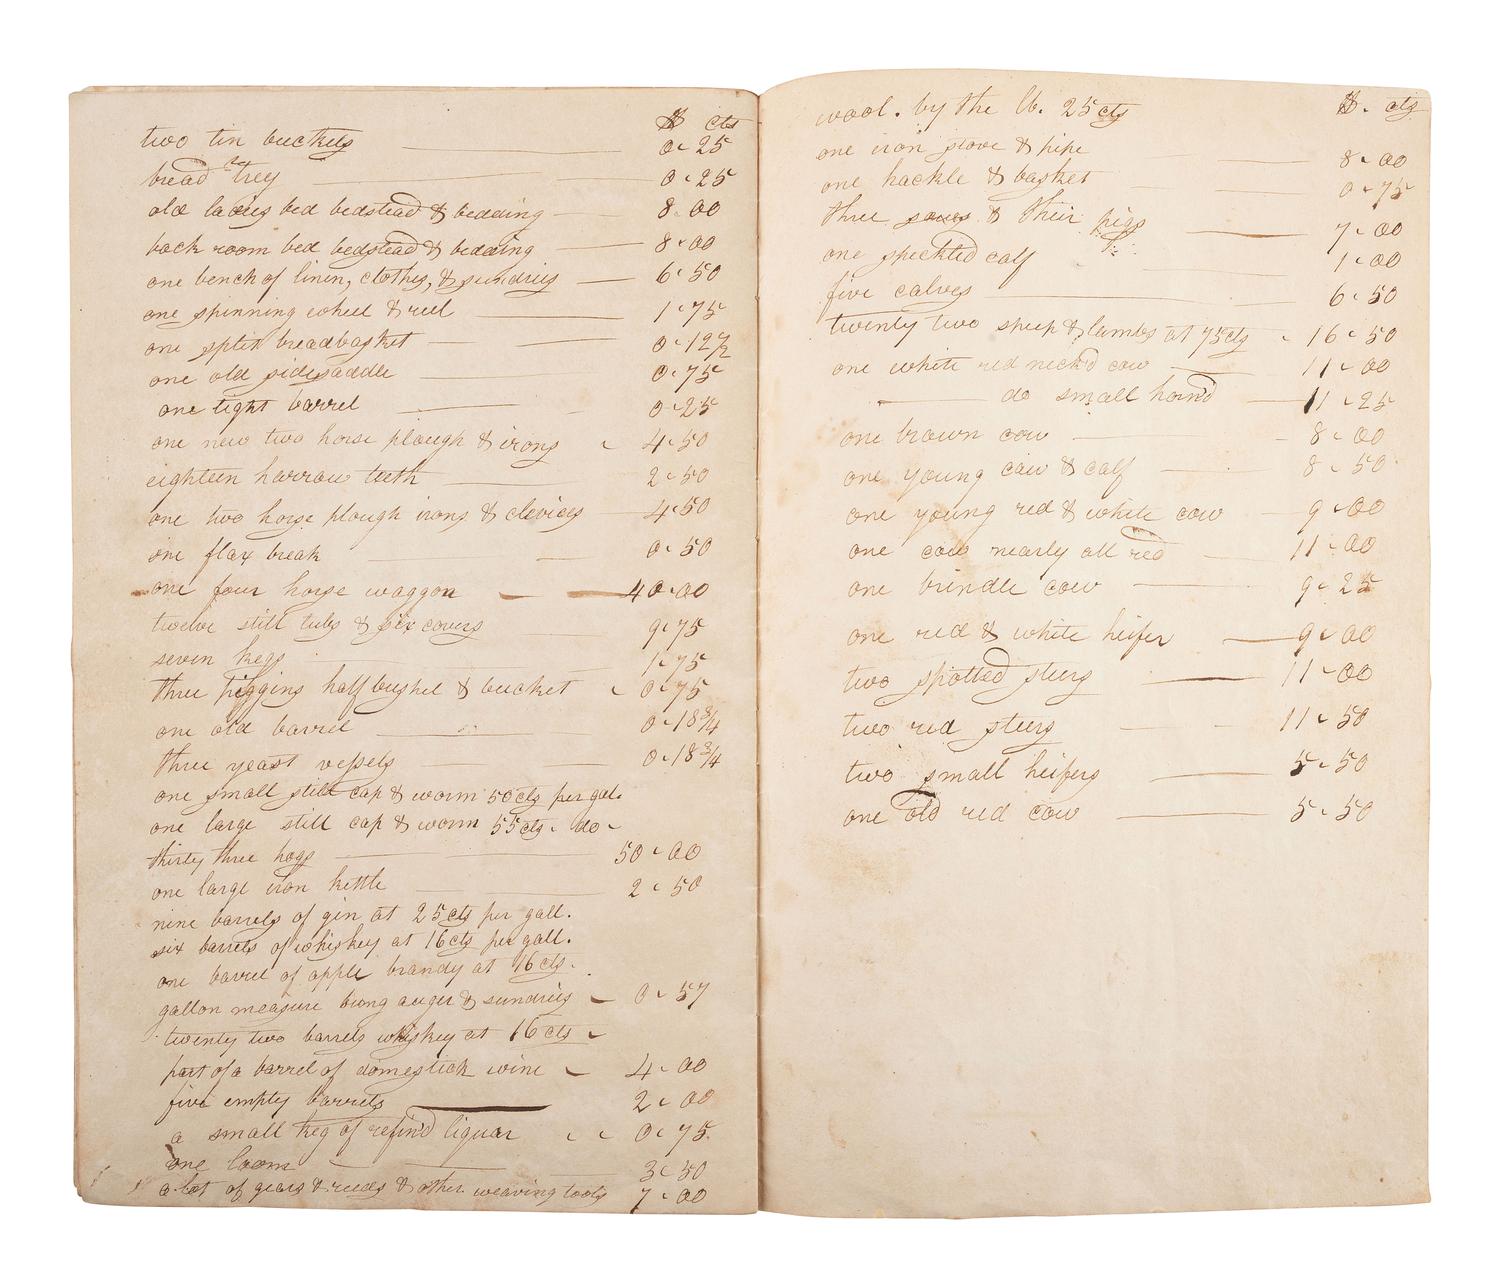 $ cts
two tin buckets 0 " 25
bread trey 0 " 25
old ladies bed bedstead & bedding 8 " 00
back room bed bedstead & bedding 8 " 00
one bench of linen, clothes, & sundries 6 " 50
one spinning wheel & reel 1 " 75
one split breadbasket 0 " 12 1/2
one old sidesaddle 0 " 75
one tight barrel 0 " 25
one new two horse plough & irons " 4 " 50
eighteen harrow teeth 2 " 50
one two horse plough irons & clevices 4 " 50
one flax break 0 " 50
one four horse waggon 40 " 00
twelve still tubs & six covers 9 " 75
seven kegs 1 " 75
three piggins half bushel & bucket " 0 " 75
one old barrel 0 " 18 3/4
three yeast vessels 0 " 18 3/4
one small still cap & worm 50 cts per gal.
one large still cap & worm 55 cts " do "
thirty three hogs 50 " 00
one large iron kettle 2 " 50
nine barrels of gin at 25 cts per gall.
six barrels of whiskey at 16 cts per gall.
one barrel of apple brandy at 16 cts.
gallon measure bung auger & sundries " 0 " 57
twenty two barrels whiskey at 16 cts "
part of a barrel of domestick wine " 4 " 00
five empty barrels 2 " 00
a small keg of refin'd liquor " " 0 " 75
one loom 3 " 50
a lot of gears & reeds & other weaving tools 7 " 00
wool. by the lb. 25 cts $. cts
one iron stove & pipe 8 " 00
one hackle & basket 0 " 75
three sows & their pigs 7 " 00
one speckled calf 1 " 00
five calves 6 " 50
twenty two sheep & lambs at 75 cts " 16 " 50
one white red neck'd cow 11 " 00
do small horn'd 11 " 25
one brown cow 8 " 00
one young cow & calf 8 " 50
one young red & white cow 9 " 00
one cow nearly all red 11 " 00
one brindle cow 9 " 25
one red & white heifer 9 " 00
two spotted steers 11 " 00
two red steers 11 " 50
two small heifers 5 " 50
one old red cow 5 " 50